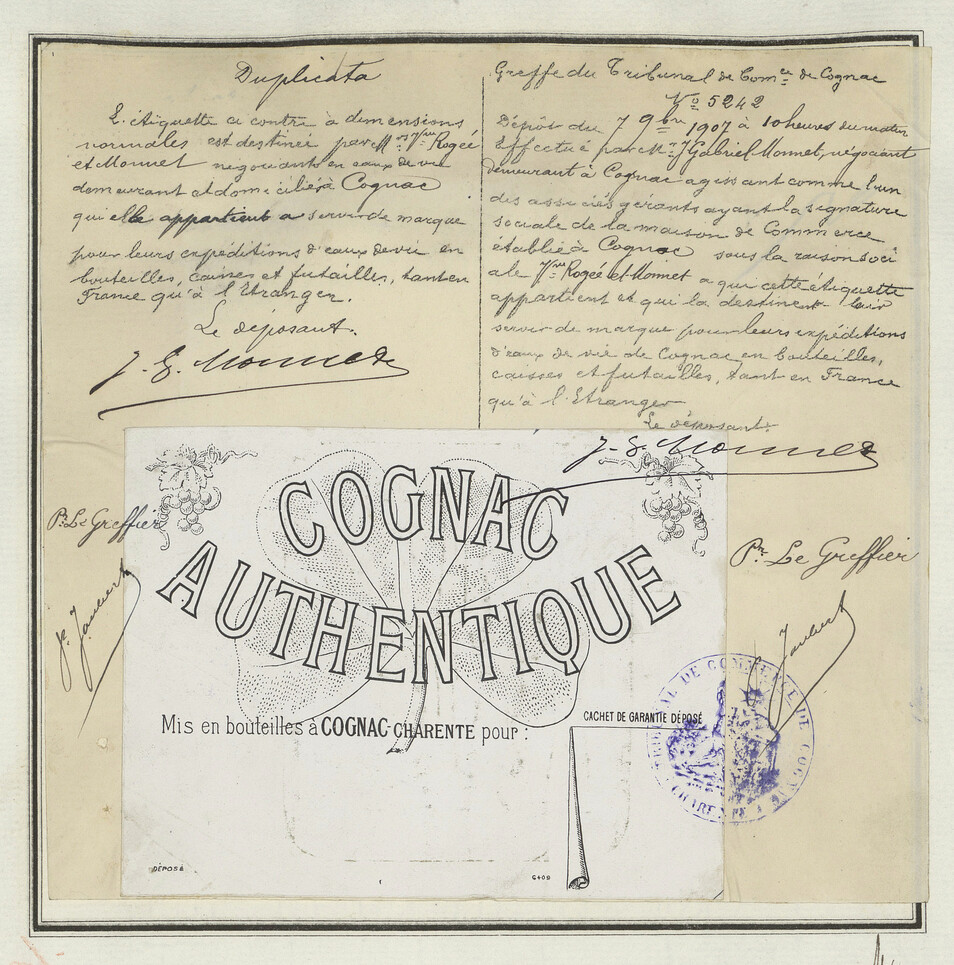 Duplicata
L'étiquette ci contre à dimensions
normales est destinée par Mrs Vve Rogée
et Monnet négociants en eaux de vie
demeurant et domiciliés à Cognac
qui elle appartient a servir de marque
pour leurs expéditions d'eaux de vie en
bouteilles, caisses et futailles, tant en
France qu'à l'Etranger.
Le déposant.
J. G. Monnet
Greffe du Tribunal de Comce de Cognac
No 5242
Dépôt du 7 9bre 1907 à 10 heures du matin
Effectué par Mr J Gabriel Monnet, négociant
demeurant à Cognac agissant comme l'un
des associés gerants ayant la signature
sociale de la maison de Commerce
établie à Cognac sous la raison soci
ale Vve Rogée et Monnet a qui cette étiquette
appartient et qui la destinent à
servir de marque pour leurs expéditions
d'eaux de vie de Cognac en bouteilles,
caisses et futailles, tant en France
qu'à l'Etranger
Le déposant.
J. G. Monnet
Pr Le Greffier
Jaubert
COGNAC
AUTHENTIQUE
Mis en bouteilles à COGNAC-CHARENTE pour :
CACHET DE GARANTIE DÉPOSÉ
DÉPOSÉ
6409
Pr Le Greffier
Jaubert
TRIBUNAL DE COMMERCE DE COGNAC
CHARENTE